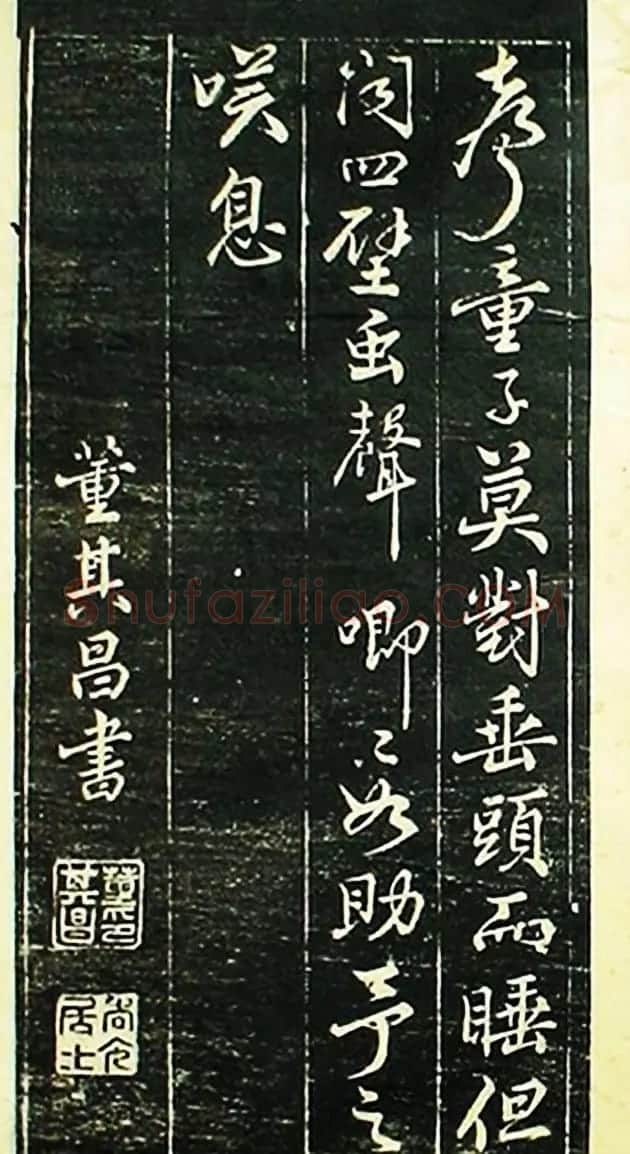 聲童子莫對垂頭而睡但
聞四壁虫聲唧〻如助予之
嘆息
董其昌書
其昌
居士
Shufaziliao.COM